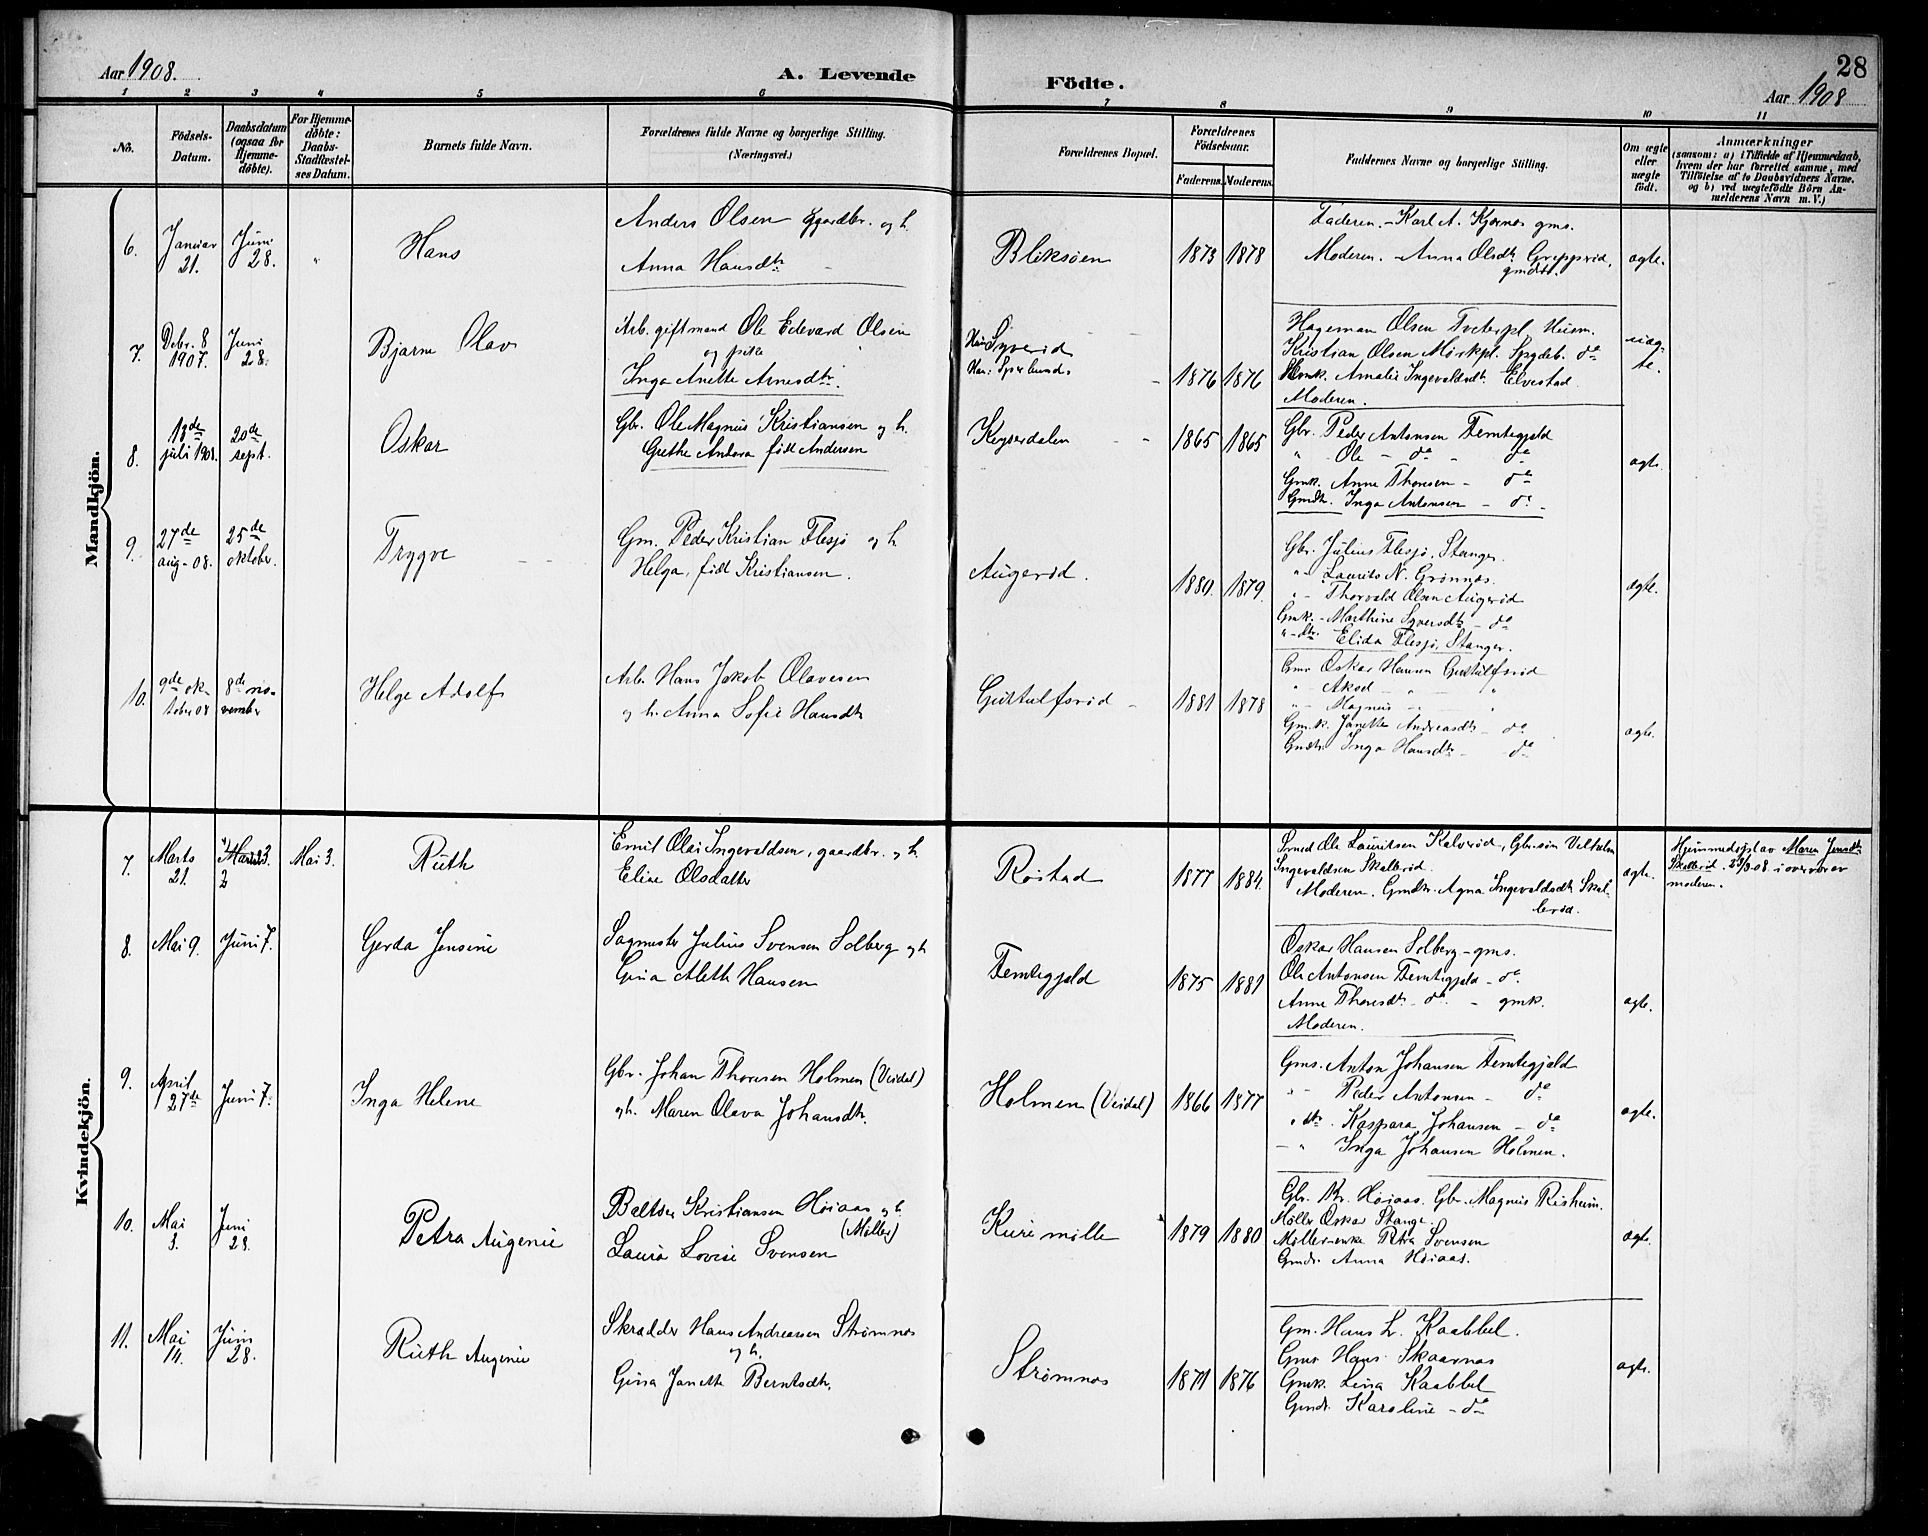 28
Aar 1908.
A. Levende
Födte.
Aar 1908
1 2 3 4 5 6 7 8 9 10 11
Nô.
Födsels-
Datum.
Daabsdatum
(ogsaa for
Hjemme-
döbte).
For Hjemme-
döbte:
Daabs-
Stadfæstel-
ses Datum.
Barnets fulde Navn.
Forældrenes fulde Navne og borgerlige Stilling.
(Næringsvei.)
Forældrenes Bopæl.
Forældrenes
Födselsaar.
Faderens.
Moderens.
Faddernes Navne og borgerlige Stilling.
Om ægte
eller
uægte
födt.
Anmærkninger
(saasom: a) i Tilfælde af Hjemmedaab,
hvem der har forrettet samme, med
Tilföielse af to Daabsvidners Navne,
og b) ved uægtefödte Börn An-
melderens Navn m. V.)
Mandkjön.
6.
Januar
21.
Juni
28.
"
Hans
Anders Olsen gaardbr. og h.
Anna Hansdtr
Bliksöen
1873
1878
Faderen. - Karl A. Kjærnes gms.
Moderen. - Anna Olsdtr Greppsrid,
gmdtr.
ægte.
7.
Debr. 8
1907.
Juni
28.
Bjarne Olav
Arb. gift mand Ole Edevard Olsen
og pike
Inga Anette Arnesdtr.
Syverid
1876
1876
Hageman Olsen Tveterpl.
Kristian Olsen Mörkpl. Spydeb. do
Gmk. Amalie Ingevaldsdtr Elvestad
Moderen.
uæg-
te.
8.
13de
juli 1908.
20de
sept.
Oskar
Gbr. Ole Magnus Kristiansen og h.
Grethe Andora födt Andersen
Keyserdalen
1865
1865
Gbr. Peder Antonsen Femtegjeld
" - Ole - do - do
Gmk. Anne Thoresen - do
Gmdtr. Inga Antonsen - do -
ægte.
9.
27de
aug-08.
25de
oktober.
Trygve
Gm. Peder Kristian Flesjø og h.
Helga, födt Kristiansen.
Augeröd.
1880.
1879.
Gbr. Julius Flesjø, Stanger.
"- Laurits N. Grönnæs.
"- Thorvald Olsen Augeröd
Gmk. - Marthine Syversdtr - do
"-dtr. Elida Flesjø, Stanger.
ægte.
10.
9de ok-
tober 08
8de no-
vember
Helge Adolf
Arb. Hans Jakob Olavesen
og h. Anna Sofie Hansdtr
Gustulfsröd -
1881
1878
Gms Oskar Hansen Gustulfsröd
" - Aksel - " "
" - Magnus - "
Gmk. Janette Andreasdtr - do
Gmdtr. Inga Hansdtr - do
ægte.
Kvindekjön.
7.
Marts
21.
Mai 3.
Ruth
Emil Olai Ingevaldsen, gaardbr. og h.
Eline Olsdatter
Röstad
1877
1884.
Smed Ole Lauritsen Kalvröd, Gbr.sön Vilhelm
Ingevaldsen Skalleröd.
Moderen. Gmdtr. Agna Ingevaldsdtr Skal-
leröd.
ægte.
Hjemmedøpt av Maren Jensdtr
Skalleröd. 23/3 08 i overvær av
moderen.
8.
Mai 9.
Juni 7.
Gerda Jensine
Sagmester Julius Svensen Solberg og h.
Gina Aleth Hansen
Femtegjeld
1875
1881
Oskar Hansen Solberg - gms.
Ole Antonsen Femtegjeld - do
Anne Thoresdtr - do - gmk.
Moderen.
ægte.
9.
April
27de
Juni 7.
Inga Helene
Gbr. Johan Thoresen Holmen (Veidal)
og h. Maren Olava Johansdtr.
Holmen (Veidal)
1866
1877
Gms. Anton Johansen Femtegjeld
"- Peder Antonsen - do
" dtr. Kaspara Johansen - do
- " Inga Johansen Holmen.
ægte.
10.
Mai
3.
Juni
28.
Petra Augenie
Baltser Kristiansen Höiaas og h.
(Møller)
Laura Lovise Svensen
Kure mølle
1879
1880
Gbr. Kr. Höiaas. Gbr. Magnus Risheim.
Møller Oskar Stange
Møllerenke Petra Svensen
Gmdr. Anna Höiaas.
ægte.
11.
Mai
14.
Juni
28.
Ruth Augenie
Skrædder Hans Andreassen Strømnæs
og h.
Gina Janette Berntsdtr.
Strømnæs
1871
1876
Gm. Hans L. Kaabbel.
Gms Hans Skaarnæs
Gmk. Lina Kaabbel
Gmdr. Karoline - do
ægte.